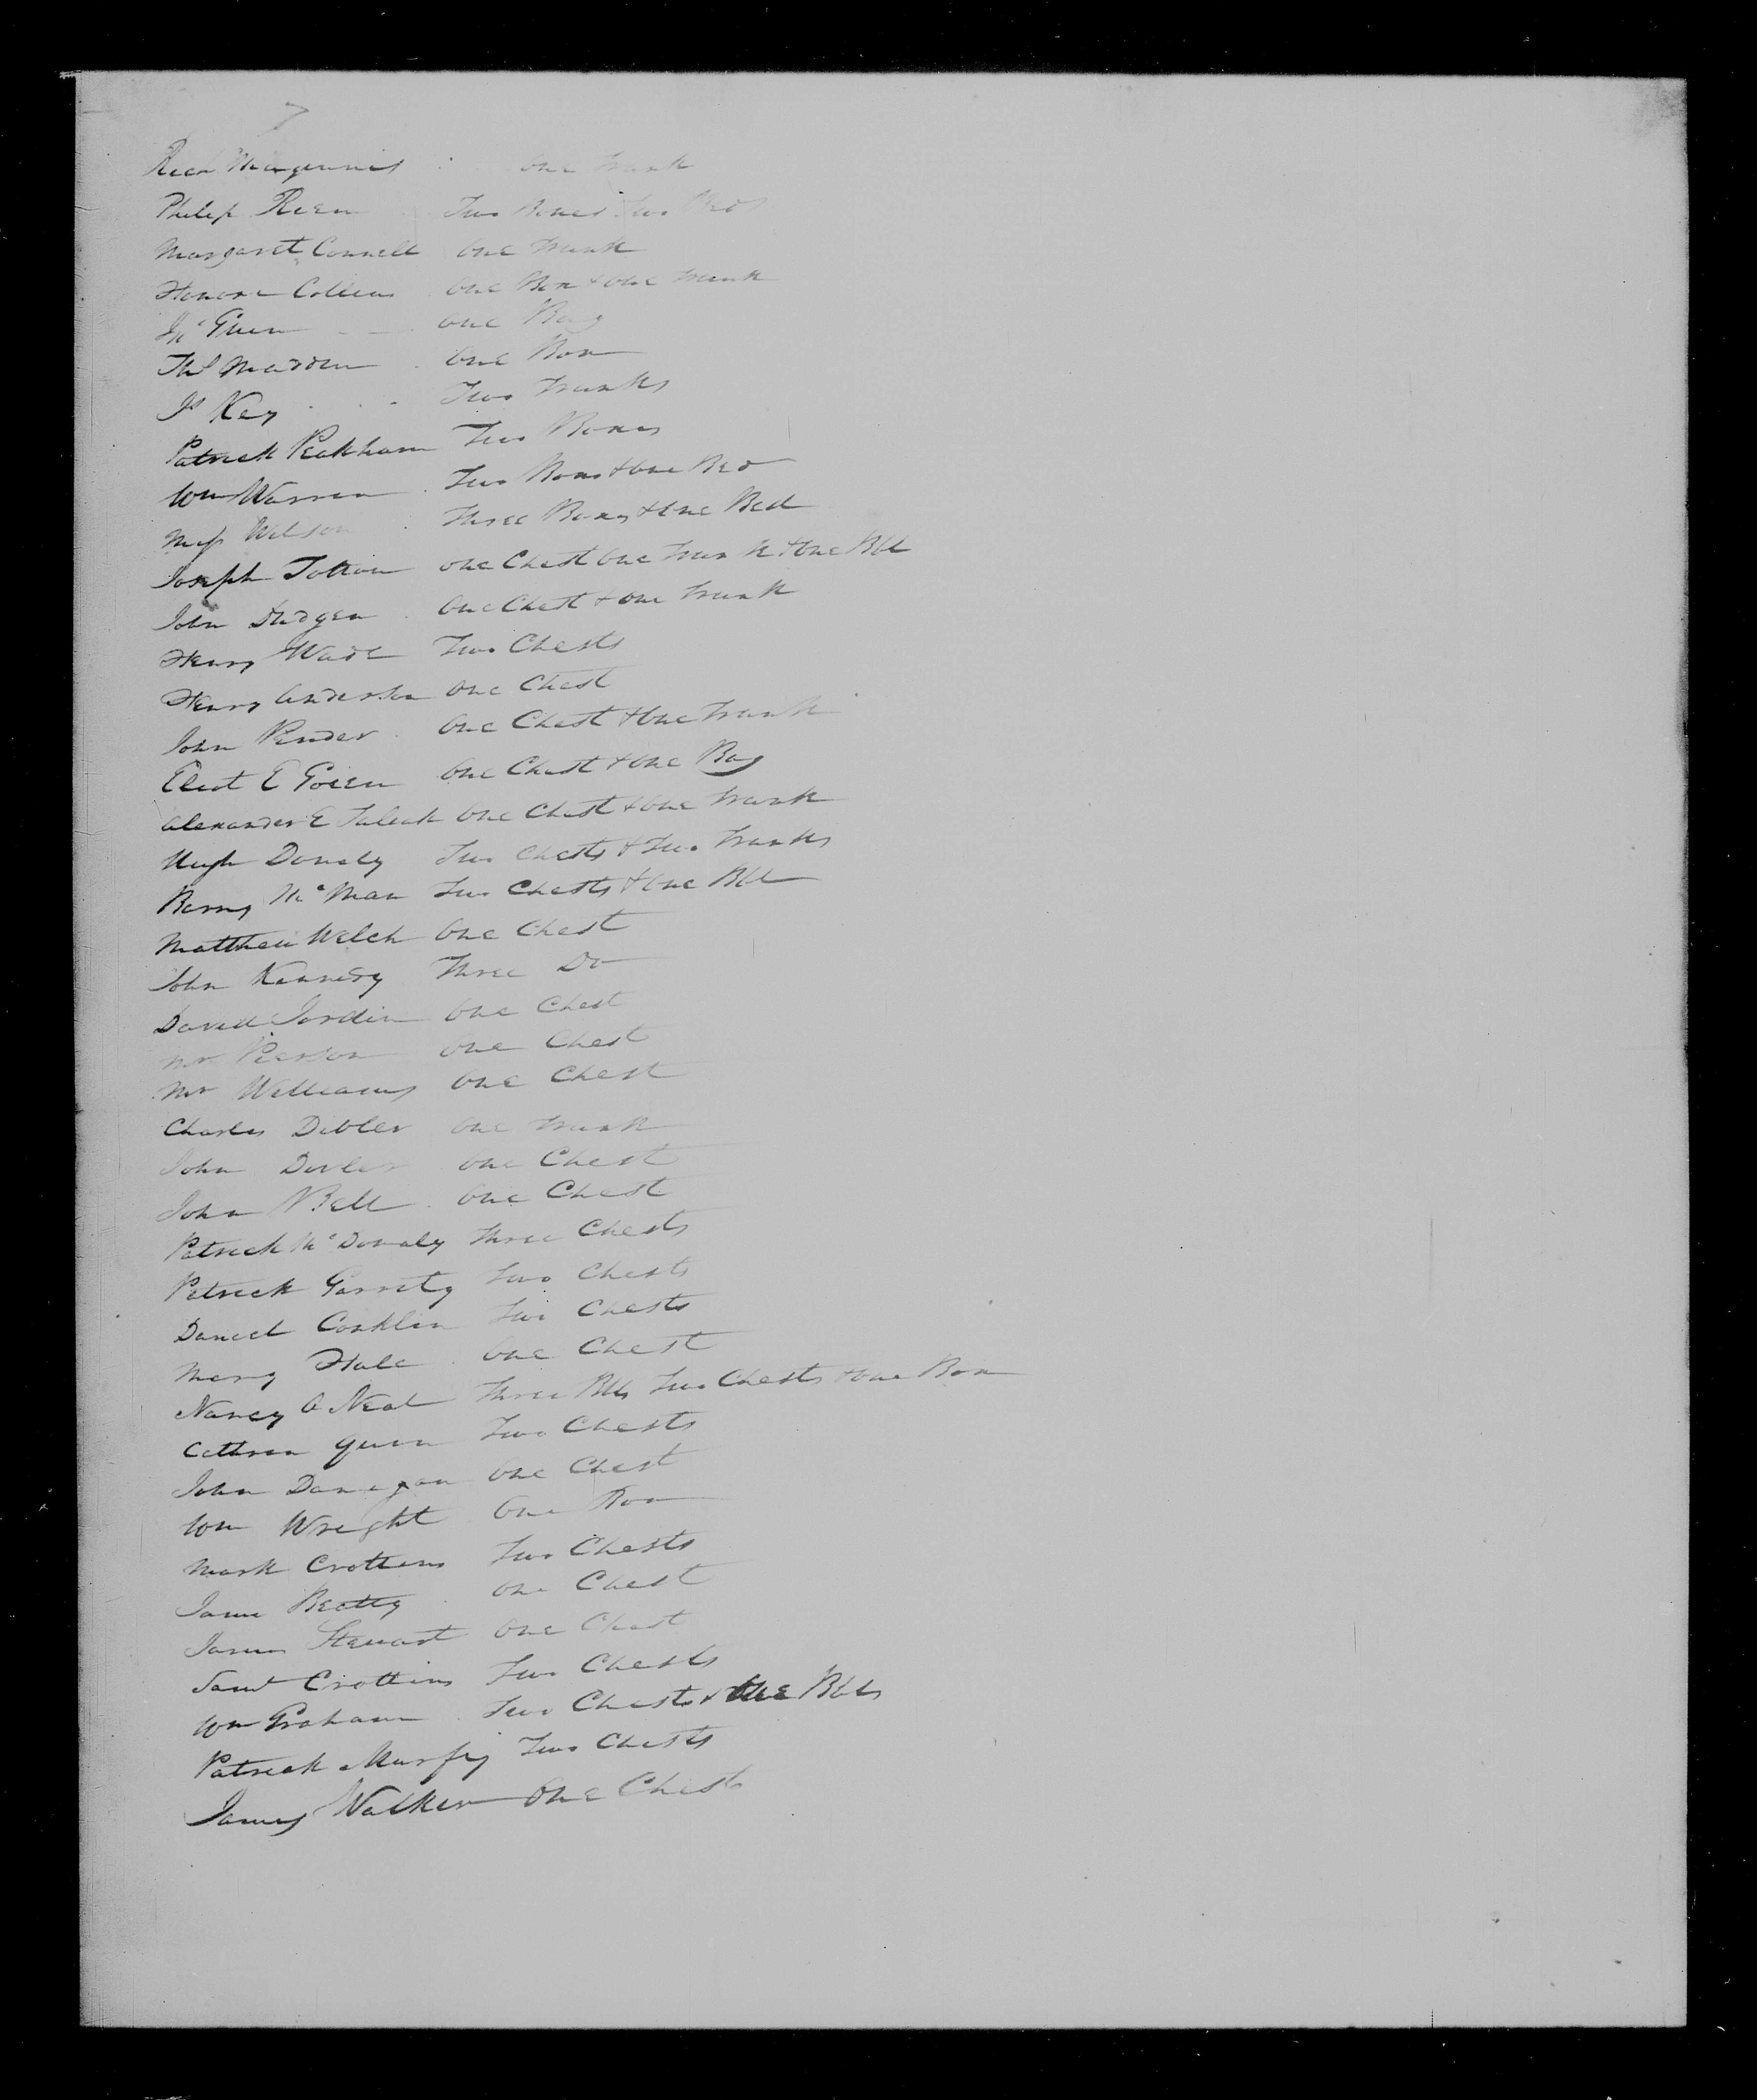 7
Richd Magennis one Trunk
Philip Rien Two Boxes Two Beds
Margaret Connell one Trunk
Honora Collins one Box & one Trunk
one Bag
Ths Madden one Box
Js Key Two Trunks
Patrick Peakham Two Boxes
Wm Warren Two Boxes & one Bed
Miss Wilson Three Boxes & one Bed
Joseph Totton one Chest one Trunk & one Bbl
John Dudgen one Chest & one Trunk
Henry Wade Two Chests
Henry Anderson one Chest
John Pender one Chest & one Trunk
E Green one Chest & one Bag
Alexander E one Chest & one Trunk
Hugh Donely Two Chests & Two Trunks
Barny McMan Two Chests & one Bbl
Matthew Welch one Chest
John Kennedy Three Do
David Jordin one Chest
Mr Pearson one Chest
Mr Williams one Chest
Charles Dibler one Trunk
John one Chest
John Bell one Chest
Patrick McDonaly Three Chests
Patrick Garrity Two Chests
Daniel Conklin Two Chests
Mary Hale one Chest
Nancy O Neal Three Bbls Two Chests & one Box
Cathren Quinn Two Chests
John Donegan one Chest
Wm Wright one Box
Mark Crottens Two Chests
Jame Beatty one Chest
James Stewart one Chest
Saml Crottins Two Chests
Wm Graham Two Chests & one Bbls
Patrick Murfy Two Chests
James Walker one Chest